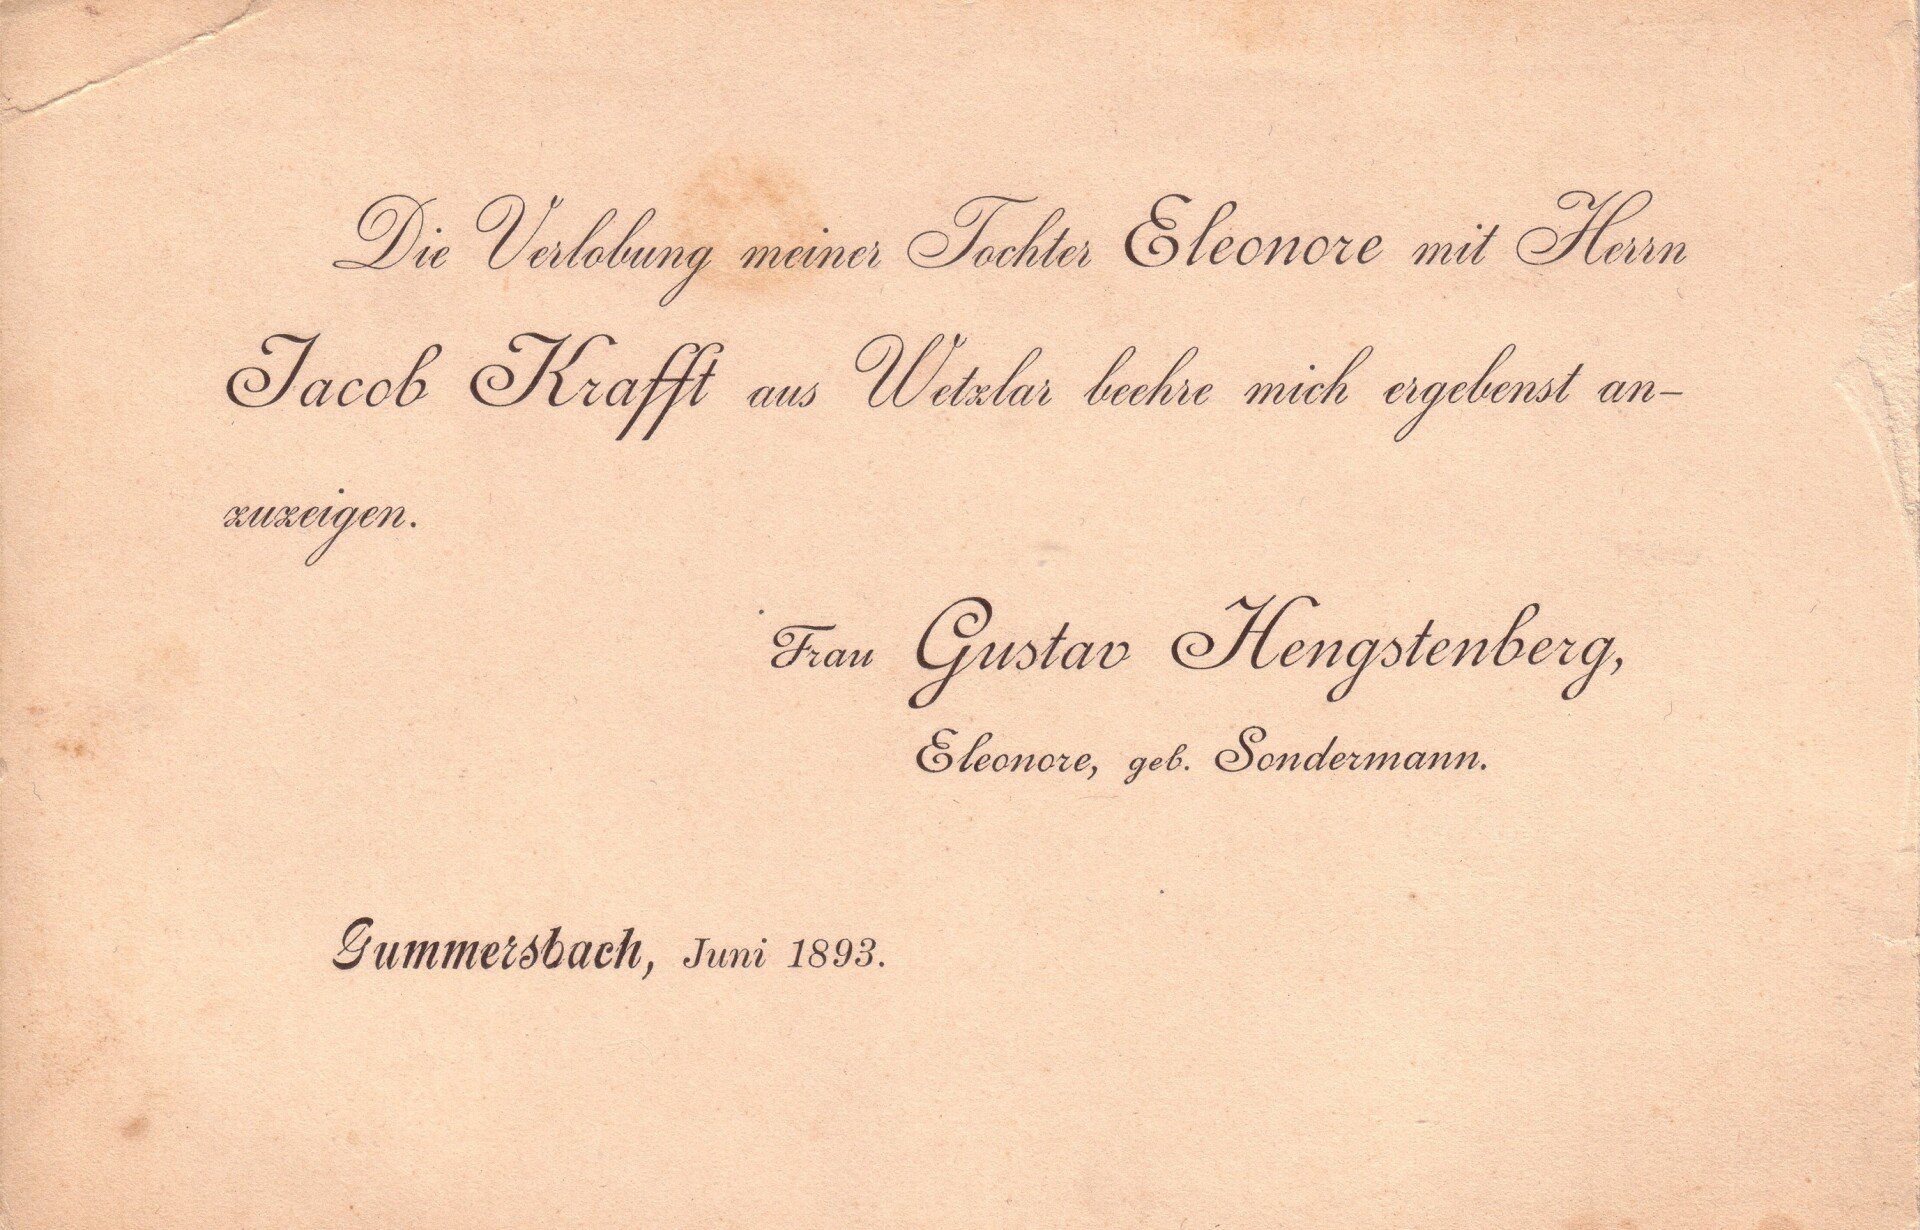 Die Verlobung meiner Tochter Eleonore mit Herrn
Jacob Krafft aus Wetzlar beehre mich ergebenst an-
zuzeigen.
Frau Gustav Hengstenberg,
Eleonore, geb. Sondermann.
Gummersbach, Juni 1893.